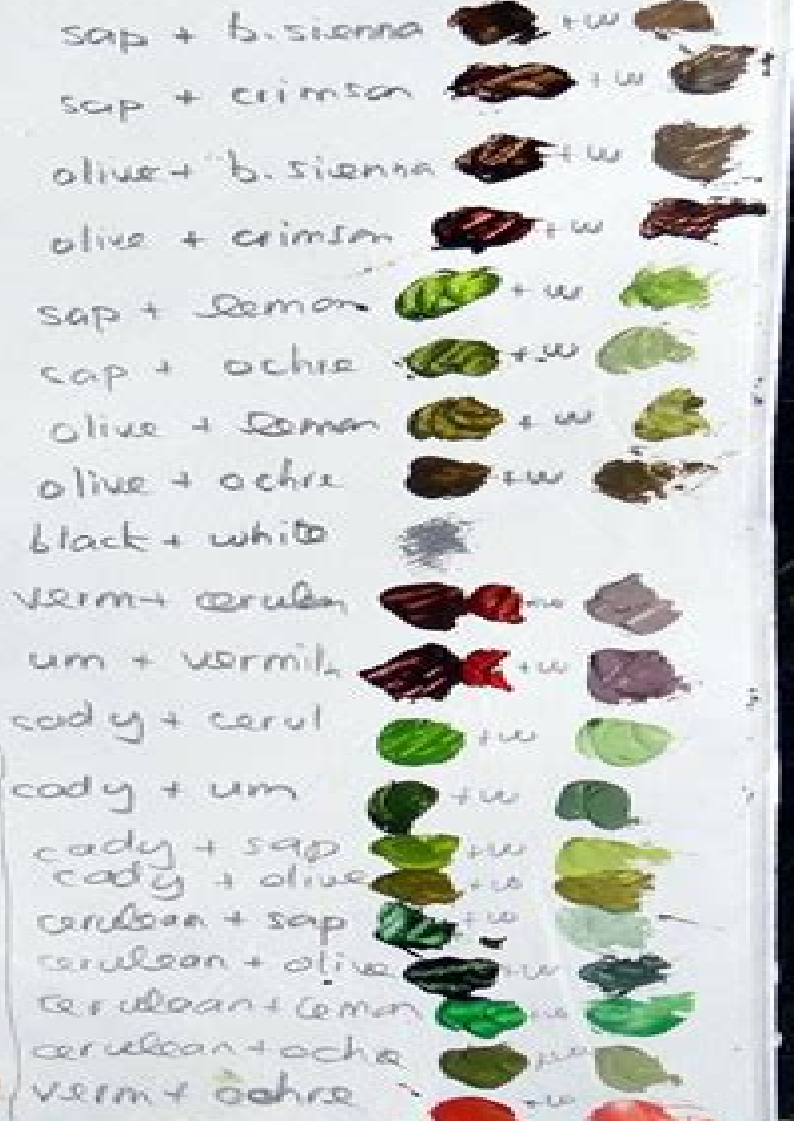 sap + b.sienna +w
sap + crimson +w
olive + b.sienna +w
olive + crimson +w
sap + lemon + w
cap + ochre + w
olive + lemon + w
olive + ochre +w
black + white
verm + cerulen
um + vermil +w
cady + cerul +w
cady + um +w
cady + sap +w
cady + olive +w
cerulean + sap +w
cerulean + olive +w
cerulaan + lemon +w
cerulean + ochre +w
verm + ochre +w